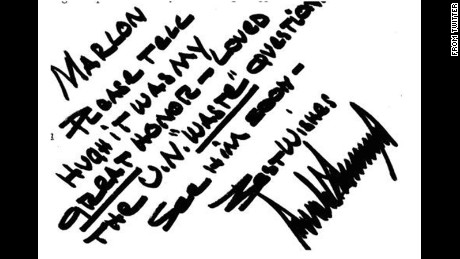 MARLON
PLEASE TELL
HUGH IT WAS MY
GREAT HONOR - LOVED
THE U.N. "WASTE" QUESTION
SEE HIM SOON -
BEST WISHES
FROM TWITTER